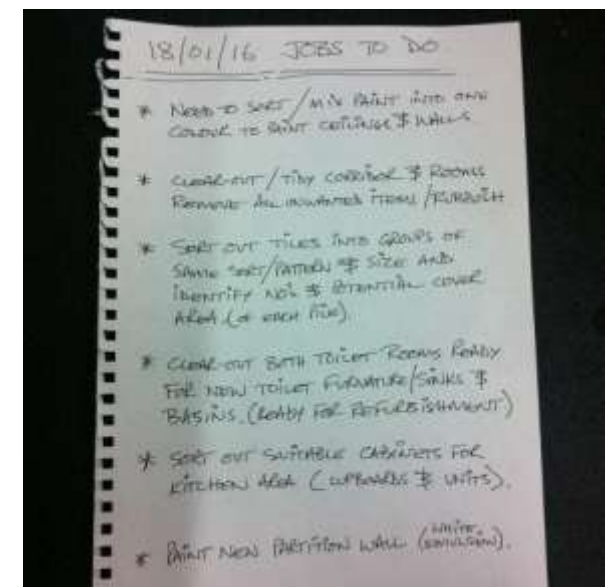 18/01/16 JOBS TO DO
* NEED TO SORT/MIX PAINT INTO ONE
COLOUR TO PAINT CEILINGS & WALLS
* CLEAR-OUT/TIDY CORRIDOR & ROOMS
REMOVE ALL UNWANTED ITEMS/RUBBISH
* SORT OUT TILES INTO GROUPS OF
SAME SORT/PATTERN & SIZE AND
IDENTIFY NO'S & POTENTIAL COVER
AREA (OF EACH PILE).
* CLEAR-OUT BOTH TOILET ROOMS READY
FOR NEW TOILET FURNATURE/SINKS &
BASINS. (READY FOR REFURBISHMENT)
* SORT OUT SUITABLE CABINETS FOR
KITCHEN AREA (CUPBOARDS & UNITS).
* PAINT NEW PARTITION WALL (WHITE EMULSION).